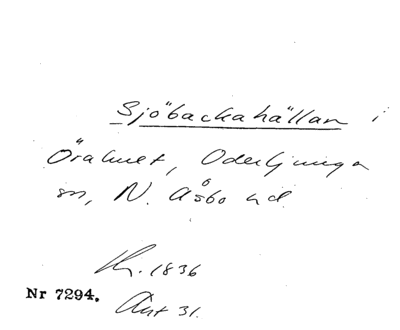 Sjöbackahällan i
Örahult, Oderljunga
sn, N. Åsbo hd.
Kr. 1836
Nr 7294.
Ant 31.